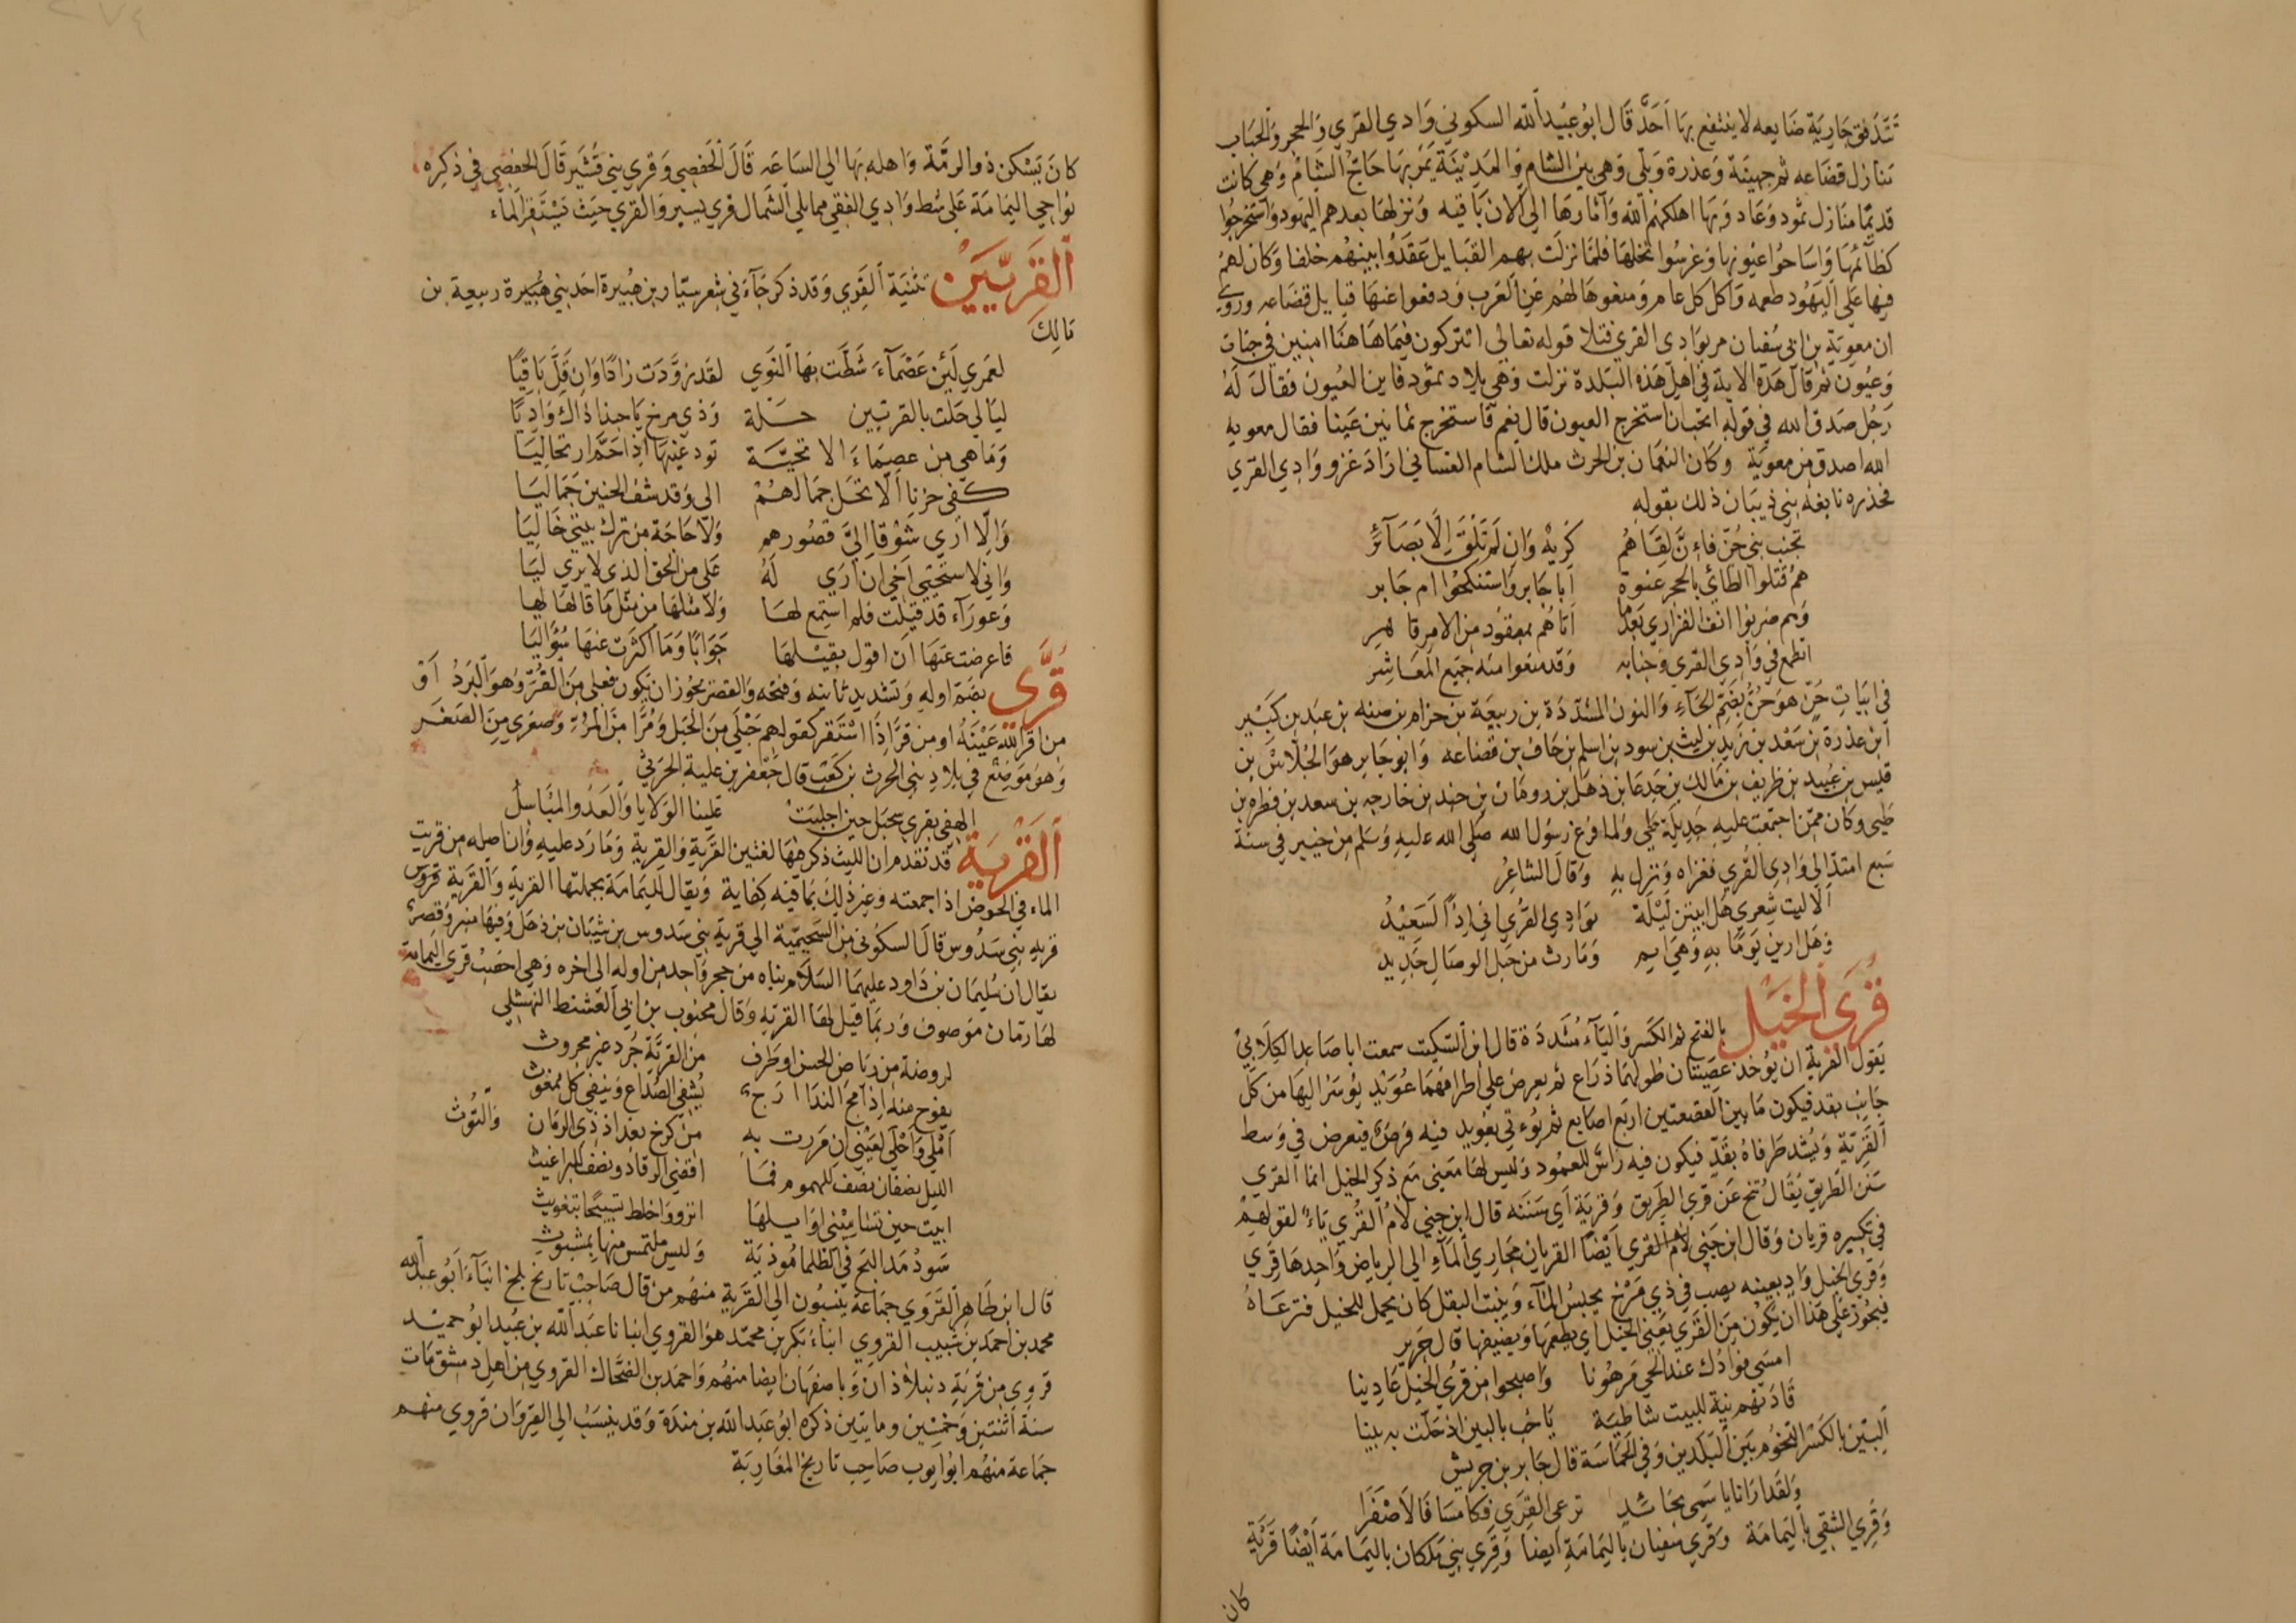 تتدفق جارية ضايعه لا ينتفع بها احد قال ابو عبيد الله السكوني وادي القرى والحجر والجناب
منازل قضاعه ثم جهينة وعذرة وبلي وهي بين الشام والمدينة يمر بها حاج الشام وهي كانت
قديما منازل ثمود وعاد وبها اهلكهم الله وآثارها الى الان باقيه ونزلها بعدهم اليهود واستخرجوا
كظائمها واساحوا عيونها وغرسوا نخلها فلما نزلت بهم القبايل عقدوا بينهم حلفا وكان لهم
فيها على اليهود طعمه واكل كل عام ومنعوها لهم عن العرب ودفعوا عنها قبايل قضاعه وروي
ان معوية بن ابي سفيان مر بوادي القرى فتلا قوله تعالى اتتركون فيما هاهنا امنين في جنات
وعيون ثم قال هذه الاية في اهل هذه البلدة نزلت وهي بلاد ثمود فاين العيون فقال له
رجل صدق الله في قوله اتحب ان استخرج العيون قال نعم فاستخرج ثمانين عينا فقال معويه
الله اصدق من معوية وكان النعمان بن الحرث ملك الشام الغساني اراد غزو وادي القرى
فحذره نابغة بني ذبيان ذلك بقوله
تجنب بني حن فان لقاهم كريه وان لم تلق الا بصائر
هم قتلوا الطائي بالحجر عنوة ابا جابر واستنكحوا ام جابر
وهم ضربوا انف الفزاري بعدما اتاهم بمعقود من الامر قاهر
اتطمع في وادي القرى وجنابه وقد منعوا منه جميع المعاشر
في ابيات حن هو حن بضم الحاء والنون المشددة بن ربيعة بن حرام بن ضنه بن عبد بن كبير
ابن عذرة بن سعد بن زيد بن ليث بن سود بن اسلم بن حاف بن قضاعه وابو جابر هو الجلاس بن
قيس بن عبيد بن ظريف بن مالك بن جدعا بن ذهل بن رومان بن جندب بن خارجه بن سعد بن فطره بن
طيى وكان ممن اجتمعت عليه جديلة طي ولما فرغ رسول الله صلى الله عليه وسلم من خيبر في سنة
سبع امتد الى وادي القرى فغزاه ونزل به وقال الشاعر
الا ليت شعري هل ابيتن ليلة بوادي القرى اني اذا لسعيد
وهل ارين يوما به وهي ايم وما رث من حبل الوصال جديد
قرى الخيل بالفتح ثم الكسر والياء مشددة قال ابن السكيت سمعت ابا صاعد الكلابي
يقول القرية ان يوخذ عصيتان طولهما ذراع ثم يعرض على اطرافهما عويد يوسر اليها من كل
جانب بقد فيكون ما بين العصيتين اربع اصابع ثم يوتى بعويد فيه فرض فيعرض في وسط
القرية ويشد طرفاه بقد فيكون فيه راس العمود وليس لها معنى مع ذكر الخيل انما القري
سنن الطريق يقال تنح عن قري الطريق وقرية اي سننه قال ابن جني لام القري ياء لقولهم
في تكسيره قريان وقال ابن جني لام القري ايضا القريان مجاري الماء الى الرياض واحدها قري
وقري الخيل واد بعينه يصب في ذي مرخ يحبس الماء وينبت البقل كان يحمل للخيل فترعاه
فيجوز على هذا ان يكون من القرى يعني الخيل اي يطعمها ويضيفها قال جرير
امسى فوادك عند الحي مرهونا واصبحوا من قري الخيل غادينا
قادتهم نية للبيت شاطية يا حب بالبين اذ حلت به بينا
البين بالكسر التخوم بين البلدين وفي الحماسة قال جابر بن حريش
ولقد ارانا يا سمي بحائل نرعى القري فكامسا فالاصفرا
وقري السقي باليمامة وقري سفيان باليمامة ايضا وقري بني ملكان باليمامة ايضا قرية
كان
كان يسكن ذو الرمة واهله بها الى الساعه قال الحفصي وقري بني قشير قال الحفصي في ذكره
نواحي اليمامة على شط وادي الفقي مما يلي الشمال قرى يسير والقري حيث يستقر الماء
القريين تثنية القري وقد ذكر جاء في شعر سيار بن هبيرة احد بني هبيرة ربيعة بن
مالك
لعمري لئن عصماء شطت بها النوى لقد زودت زادا وان قل باقيا
ليالي حلت بالقريين حلة وذي مرخ يا حبذا ذاك واديا
وما هي من عصماء الا تحية تودعنيها اذا احم ارتحاليا
كفى حزنا الا تحل جمالهم الى وقد شف الحنين جماليا
والا ارى شوقا الي قصورهم ولا حاجة من ترك بيتي خاليا
واني لاستحيي اخي ان ارى له علي من الحق الذي لا يرى ليا
وعوراء قد قيلت فلم استمع لها ولا مثلها من مثل ما قالها ليا
فاعرضت عنها ان اقول بقيلها جوابا وما اكثرت عنها سؤاليا
قرى بضم اوله وتشديد ثانيه وفتحه والقصر يجوز ان يكون فعلى من القر وهو البرد او
من اقر الله عينه او من قر اذا استقر كقولهم حبلى من الحبل ومرا من المر وصغرى من الصغر
وهو موضع في بلاد بني الحرث بن كعب قال جعفر بن علبة الحرثي
الهفى بقرى سحبل حين اجلبت علينا الولايا والعدو المباسل
القرية قد تقدم ان الليث ذكر فيها لغتين القرية والقرية وما رد عليه وان اصله من قريت
الماء في الحوض اذا جمعته وغير ذلك بما فيه كفاية ويقال لليمامة بجملتها القرية والقرية قرية
قريه بني سدوس قال السكوني من السحيمية الى قرية بني سدوس بن شيبان بن ذهل وفيها منبر وقصر
يقال ان سليمان بن داود عليهما السلام بناه من حجر واحد من اوله الى اخره وهي اخصب قرى اليمامة
لها رمان موصوف وربما قيل لها القريه وقال محبوب بن ابي العشنط النهشلي
لروضة من رياض الحزن او طرف من القرية جرد غير محروث
يفوح منه اذا مج الندا ارج يشفي الصداع وينفي كل ممغوث
املي واحلى لعيني ان مررت به من كرخ بغداد ذي الرمان والتوث
الليل نصفان نصف للهموم فما اقضي الرقاد ونصف للبراغيث
ابيت حين تساميني اوايلها انزو واخلط تسبيحا بتغويث
سود مداليج في الظلما موذية وليس ملتمس منها بمشبوث
قال ابن طاهر القروي جماعة ينسبون الى القرية منهم من قال صاحب تاريخ بلخ انباء ابو عبد الله
محمد بن احمد بن شبيب القروي انباء بكر بن محمد هو القروي انبانا عبد الله بن عبيد ابو حميد
قروي من قرية دنبلاذان وباصفهان ايضا منهم واحمد بن الضحاك القروي من اهل دمشق مات
سنة اثنتين وخمسين ومايتين ذكره ابو عبد الله بن مندة وقد ينسب الى القيروان قروي منهم
جماعة منهم ابو ايوب صاحب تاريخ المغاربة